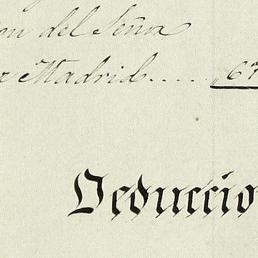 on del Señor
Madrid..... 67
Deduccio